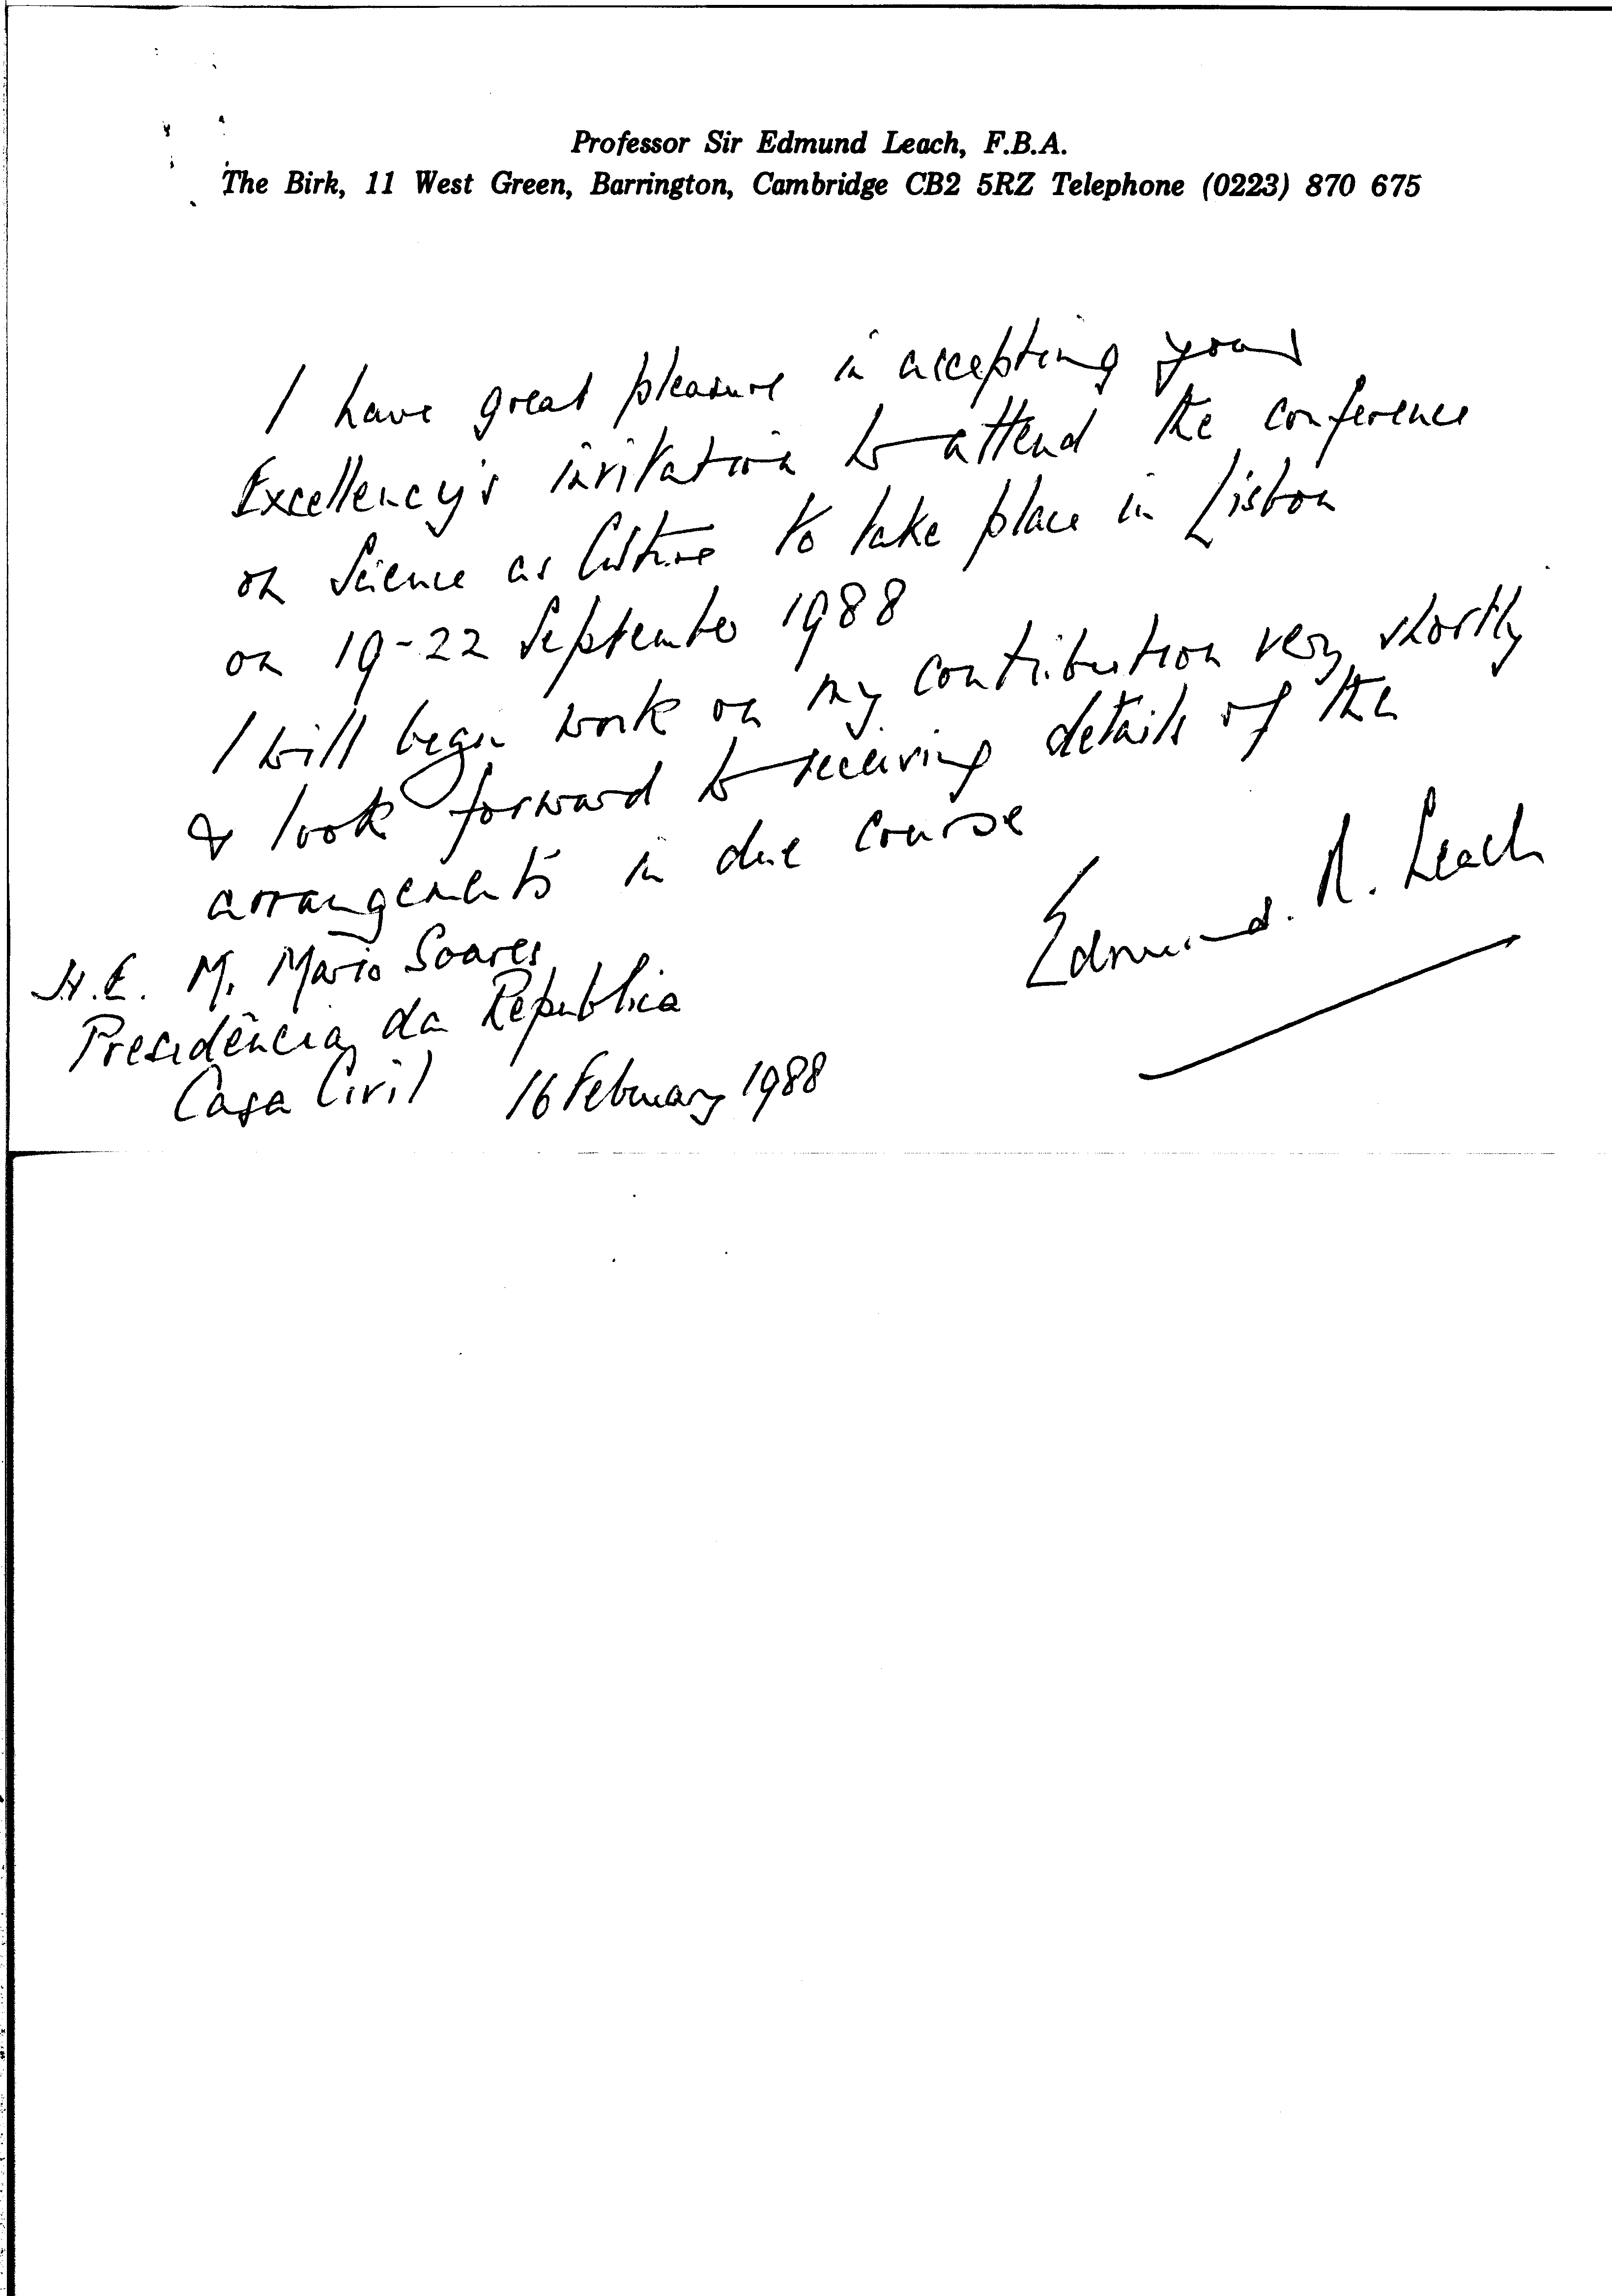 Professor Sir Edmund Leach, F.B.A.
The Birk, 11 West Green, Barrington, Cambridge CB2 5RZ Telephone (0223) 870 675
I have great pleasure in accepting your
Excellency's invitation to attend the conference
on Science as Culture to take place in Lisbon
on 19-22 September 1988
I will begin work on my contribution very shortly
& look forward to receiving details of the
arrangements in due course
Edmund. R. Leach
H.E. M. Mario Soares
Presidência da Republica
Casa Civil 16 February 1988